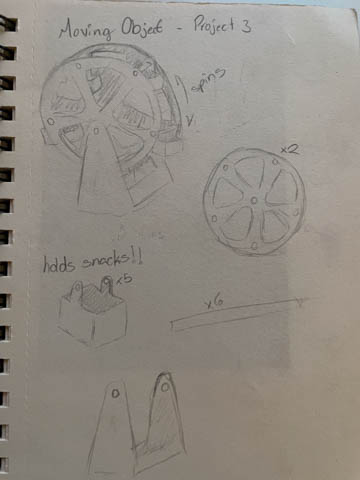 Moving Object - Project 3
spins
x2
holds snacks!!
x5
x6